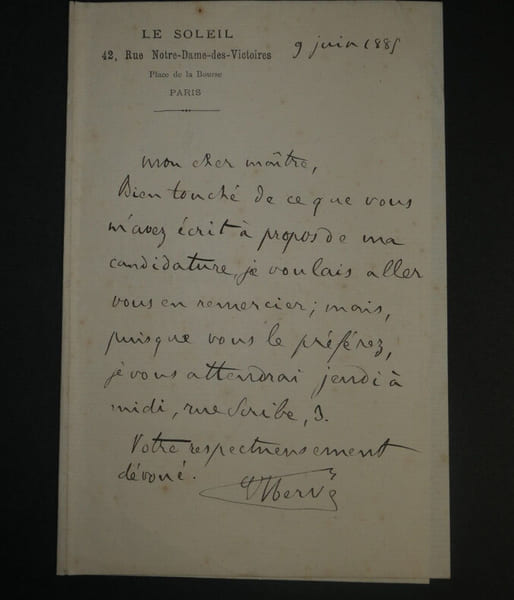 LE SOLEIL
42, Rue Notre-Dame-des-Victoires
Place de la Bourse
PARIS
9 juin 1885
Mon cher maître,
Bien touché de ce que vous
m'avez écrit à propos de ma
candidature, je voulais aller
vous en remercier; mais,
puisque vous le préférez,
je vous attendrai jeudi à
midi, rue Scribe, 3.
Votre respectueusement
dévoué.
Hervé